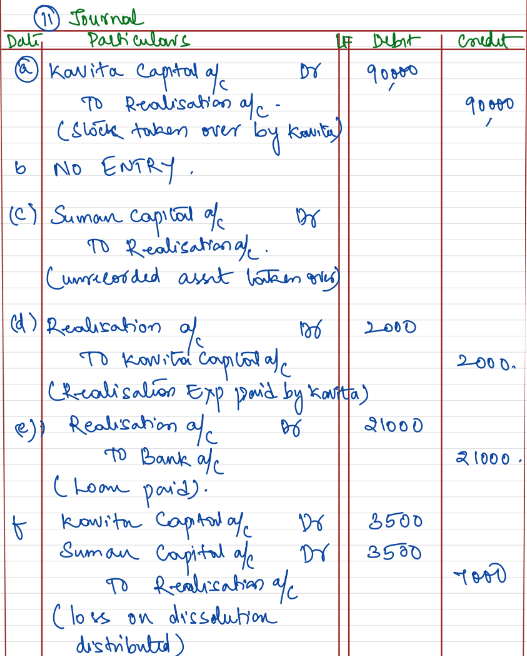 (11) Journal
Date Particulars LF Debit Credit
(a) Kavita Capital a/c Dr 90,000
To Realisation a/c - 90,000
(Stock taken over by Kavita)
b NO ENTRY.
(c) Suman Capital a/c Dr
To Realisation a/c.
(unrecorded asset taken over)
(d) Realisation a/c Dr 2000
To Kavita Capital a/c 2000.
(Realisation Exp paid by Kavita)
(e) Realisation a/c Dr 21000
To Bank a/c 21000.
(Loan paid).
f Kavita Capital a/c Dr 3500
Suman Capital a/c Dr 3500
To Realisation a/c 7000
(loss on dissolution
distributed)